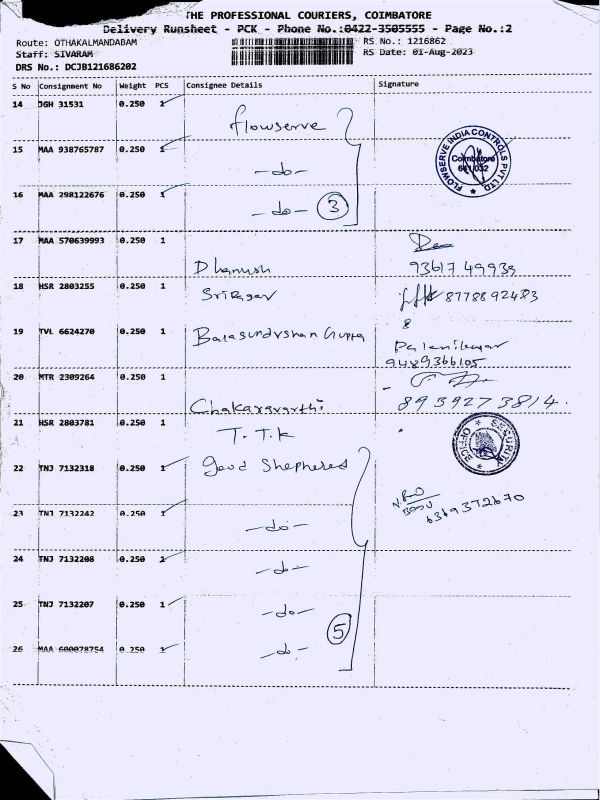 THE PROFESSIONAL COURIERS, COIMBATORE
Delivery Runsheet - PCK - Phone No.:0422-3505555 - Page No.:2
Route: OTHAKALMANDABAM RS No.: 1216862
Staff: SIVARAM RS Date: 01-Aug-2023
DRS No.: DCJB121686202
S No Consignment No Weight PCS Consignee Details Signature
14 JGH 31531 0.250 1 flowserve
15 MAA 938765787 0.250 1 -do- FLOWSERVE INDIA CONTROLS PVT LTD Coimbatore 641 032
16 MAA 298122676 0.250 1 -do- 3
17 MAA 570639993 0.250 1 Dhanush 93617 49939
18 HSR 2803255 0.250 1 8778892483
19 TVL 6624270 0.250 1 Gupta 9489366105
20 MTR 2309264 0.250 1 Chakaravarthi 8939273814.
21 HSR 2803781 0.250 1 T.T.K SECURITY OFFICE
22 TNJ 7132318 0.250 1 Good Shephered
23 TNJ 7132242 0.250 1 -do- 6369372670
24 TNJ 7132208 0.250 1 -do-
25 TNJ 7132207 0.250 1 -do-
26 MAA 600078754 0.250 1 -do- 5